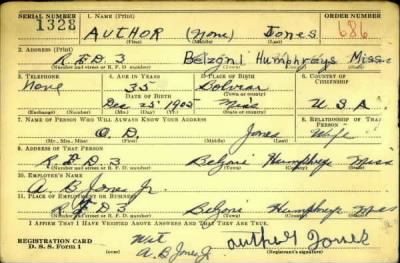 SERIAL NUMBER 1. NAME (Print) ORDER NUMBER
1328 AUTHOR (None) Jones 686
(First) (Middle) (Last)
2. ADDRESS (Print)
R.F.D. 3 Belzoni Humphrays Miss
(Number and street or R. F. D. number) (Town) (County) (State)
3. TELEPHONE 4. AGE IN YEARS 5. PLACE OF BIRTH 6. COUNTRY OF CITIZENSHIP
None 35 Bolivar
DATE OF BIRTH (Town or county)
Dec 25 1905 Miss U.S.A.
(Exchange) (Number) (Mo.) (Day) (Yr.) (State or country)
7. NAME OF PERSON WHO WILL ALWAYS KNOW YOUR ADDRESS 8. RELATIONSHIP OF THAT PERSON
O. D. Jones Wife
(Mr., Mrs., Miss) (First) (Middle) (Last)
9. ADDRESS OF THAT PERSON
R.F.D. 3 Belzoni Humphreys Miss
(Number and street or R. F. D. number) (Town) (County) (State)
10. EMPLOYER'S NAME
A. B. Jones Jr.
11. PLACE OF EMPLOYMENT OR BUSINESS
R.F.D. 3 Belzoni Humphreys Miss
(Number and street or R. F. D. number) (Town) (County) (State)
I AFFIRM THAT I HAVE VERIFIED ABOVE ANSWERS AND THAT THEY ARE TRUE.
REGISTRATION CARD Wit
D. S. S. Form 1 A. B. Jones Jr. Jones
(Registrant's signature)